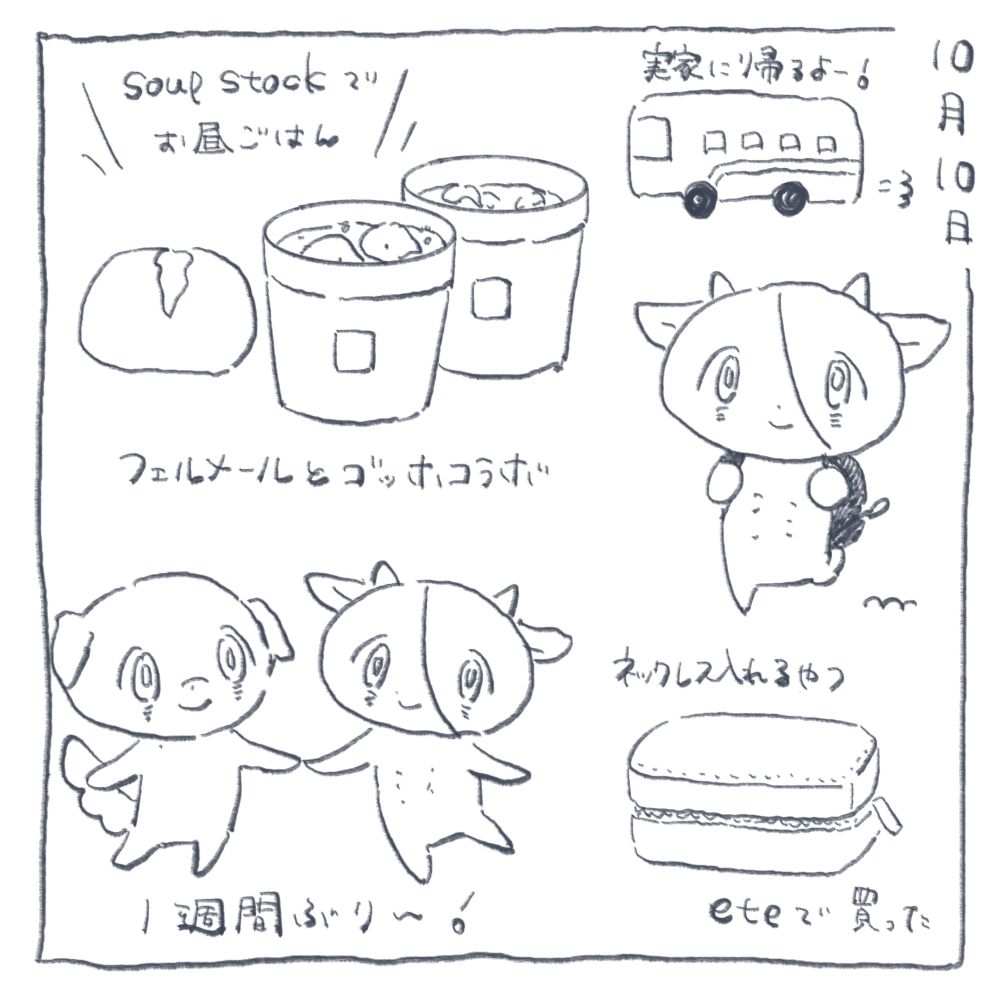 10月10日
soup stockで
お昼ごはん
フェルメールとゴッホコラボ
実家に帰るよー!
1週間ぶり〜!
ネックレス入れるやつ
eteで買った